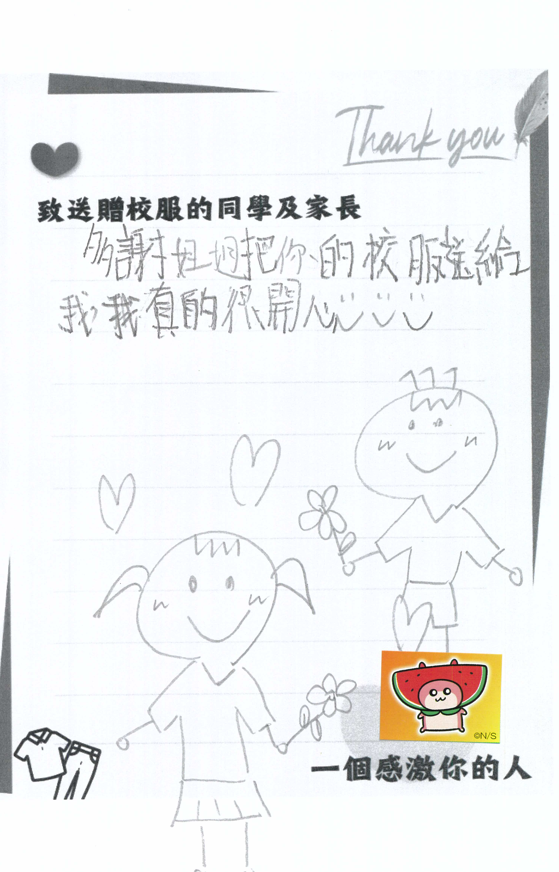 Thank you
致送贈校服的同學及家長
多謝姐姐把你的校服送給
我,我真的很開心
©N/S
一個感激你的人